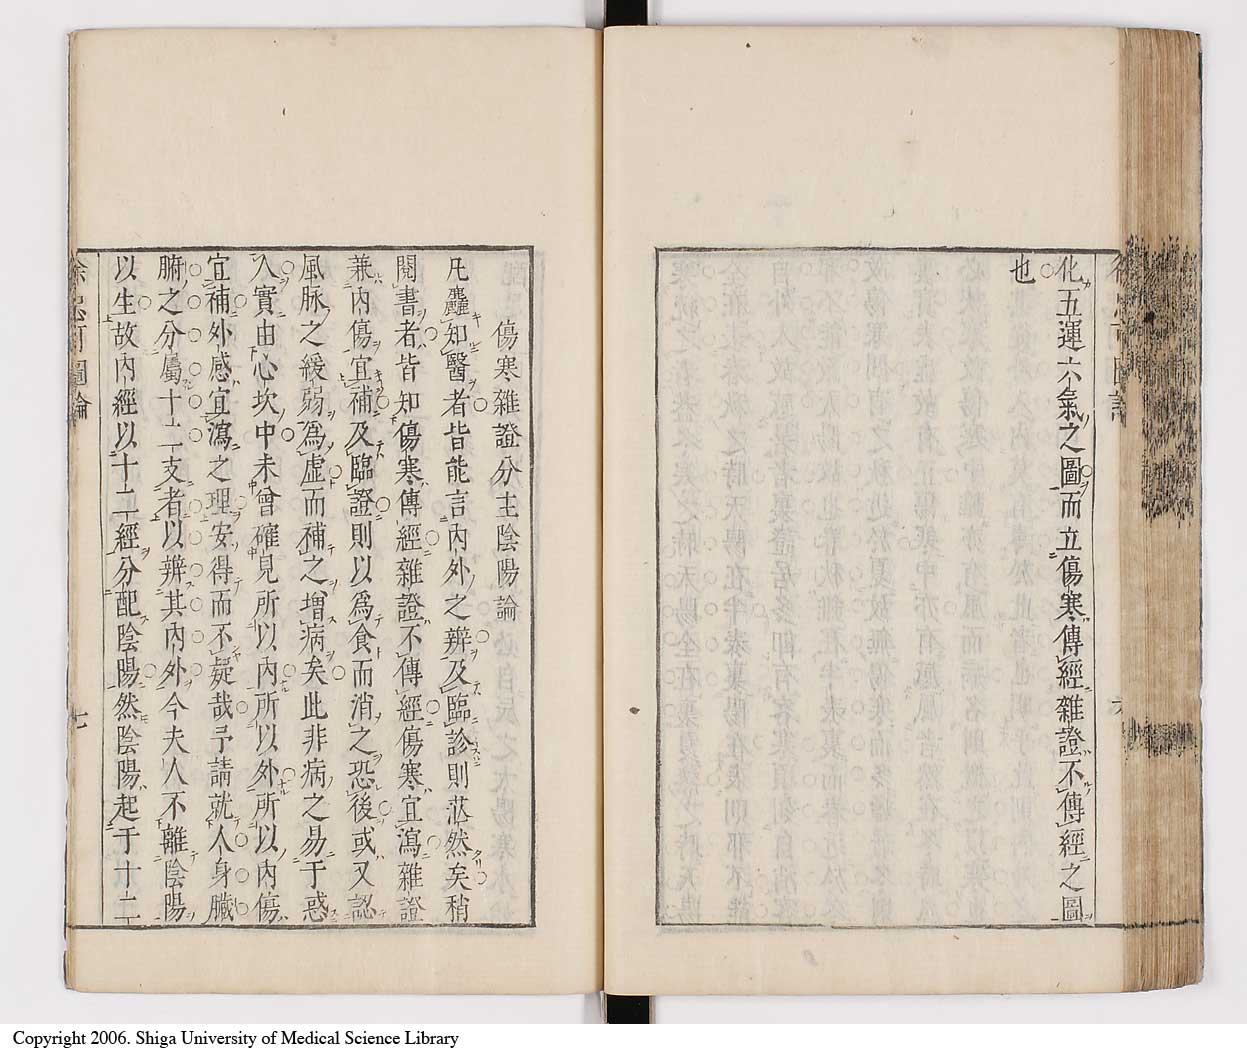 化五運六氣之圖而立傷寒傳經雜證不傳經之圖
也
傷寒雜證分主陰陽論
凡麤知醫者皆能言內外之辨及臨診則茫然矣稍
閱書者皆知傷寒傳經雜證不傳經傷寒宜瀉雜證
兼內傷宜補及臨證則以爲食而消之恐後或又認
風脉之緩弱爲虛而補之增病矣此非病之易于惑
入實由心坎中未曾確見所以內所以外所以內傷
宜補外感宜瀉之理安得而不疑哉予請就人身臟
腑之分屬十二支者以辨其內外今夫人不離陰陽
以生故內經以十二經分配陰陽然陰陽起于十二
圖論
七
Copyright 2006. Shiga University of Medical Science Library